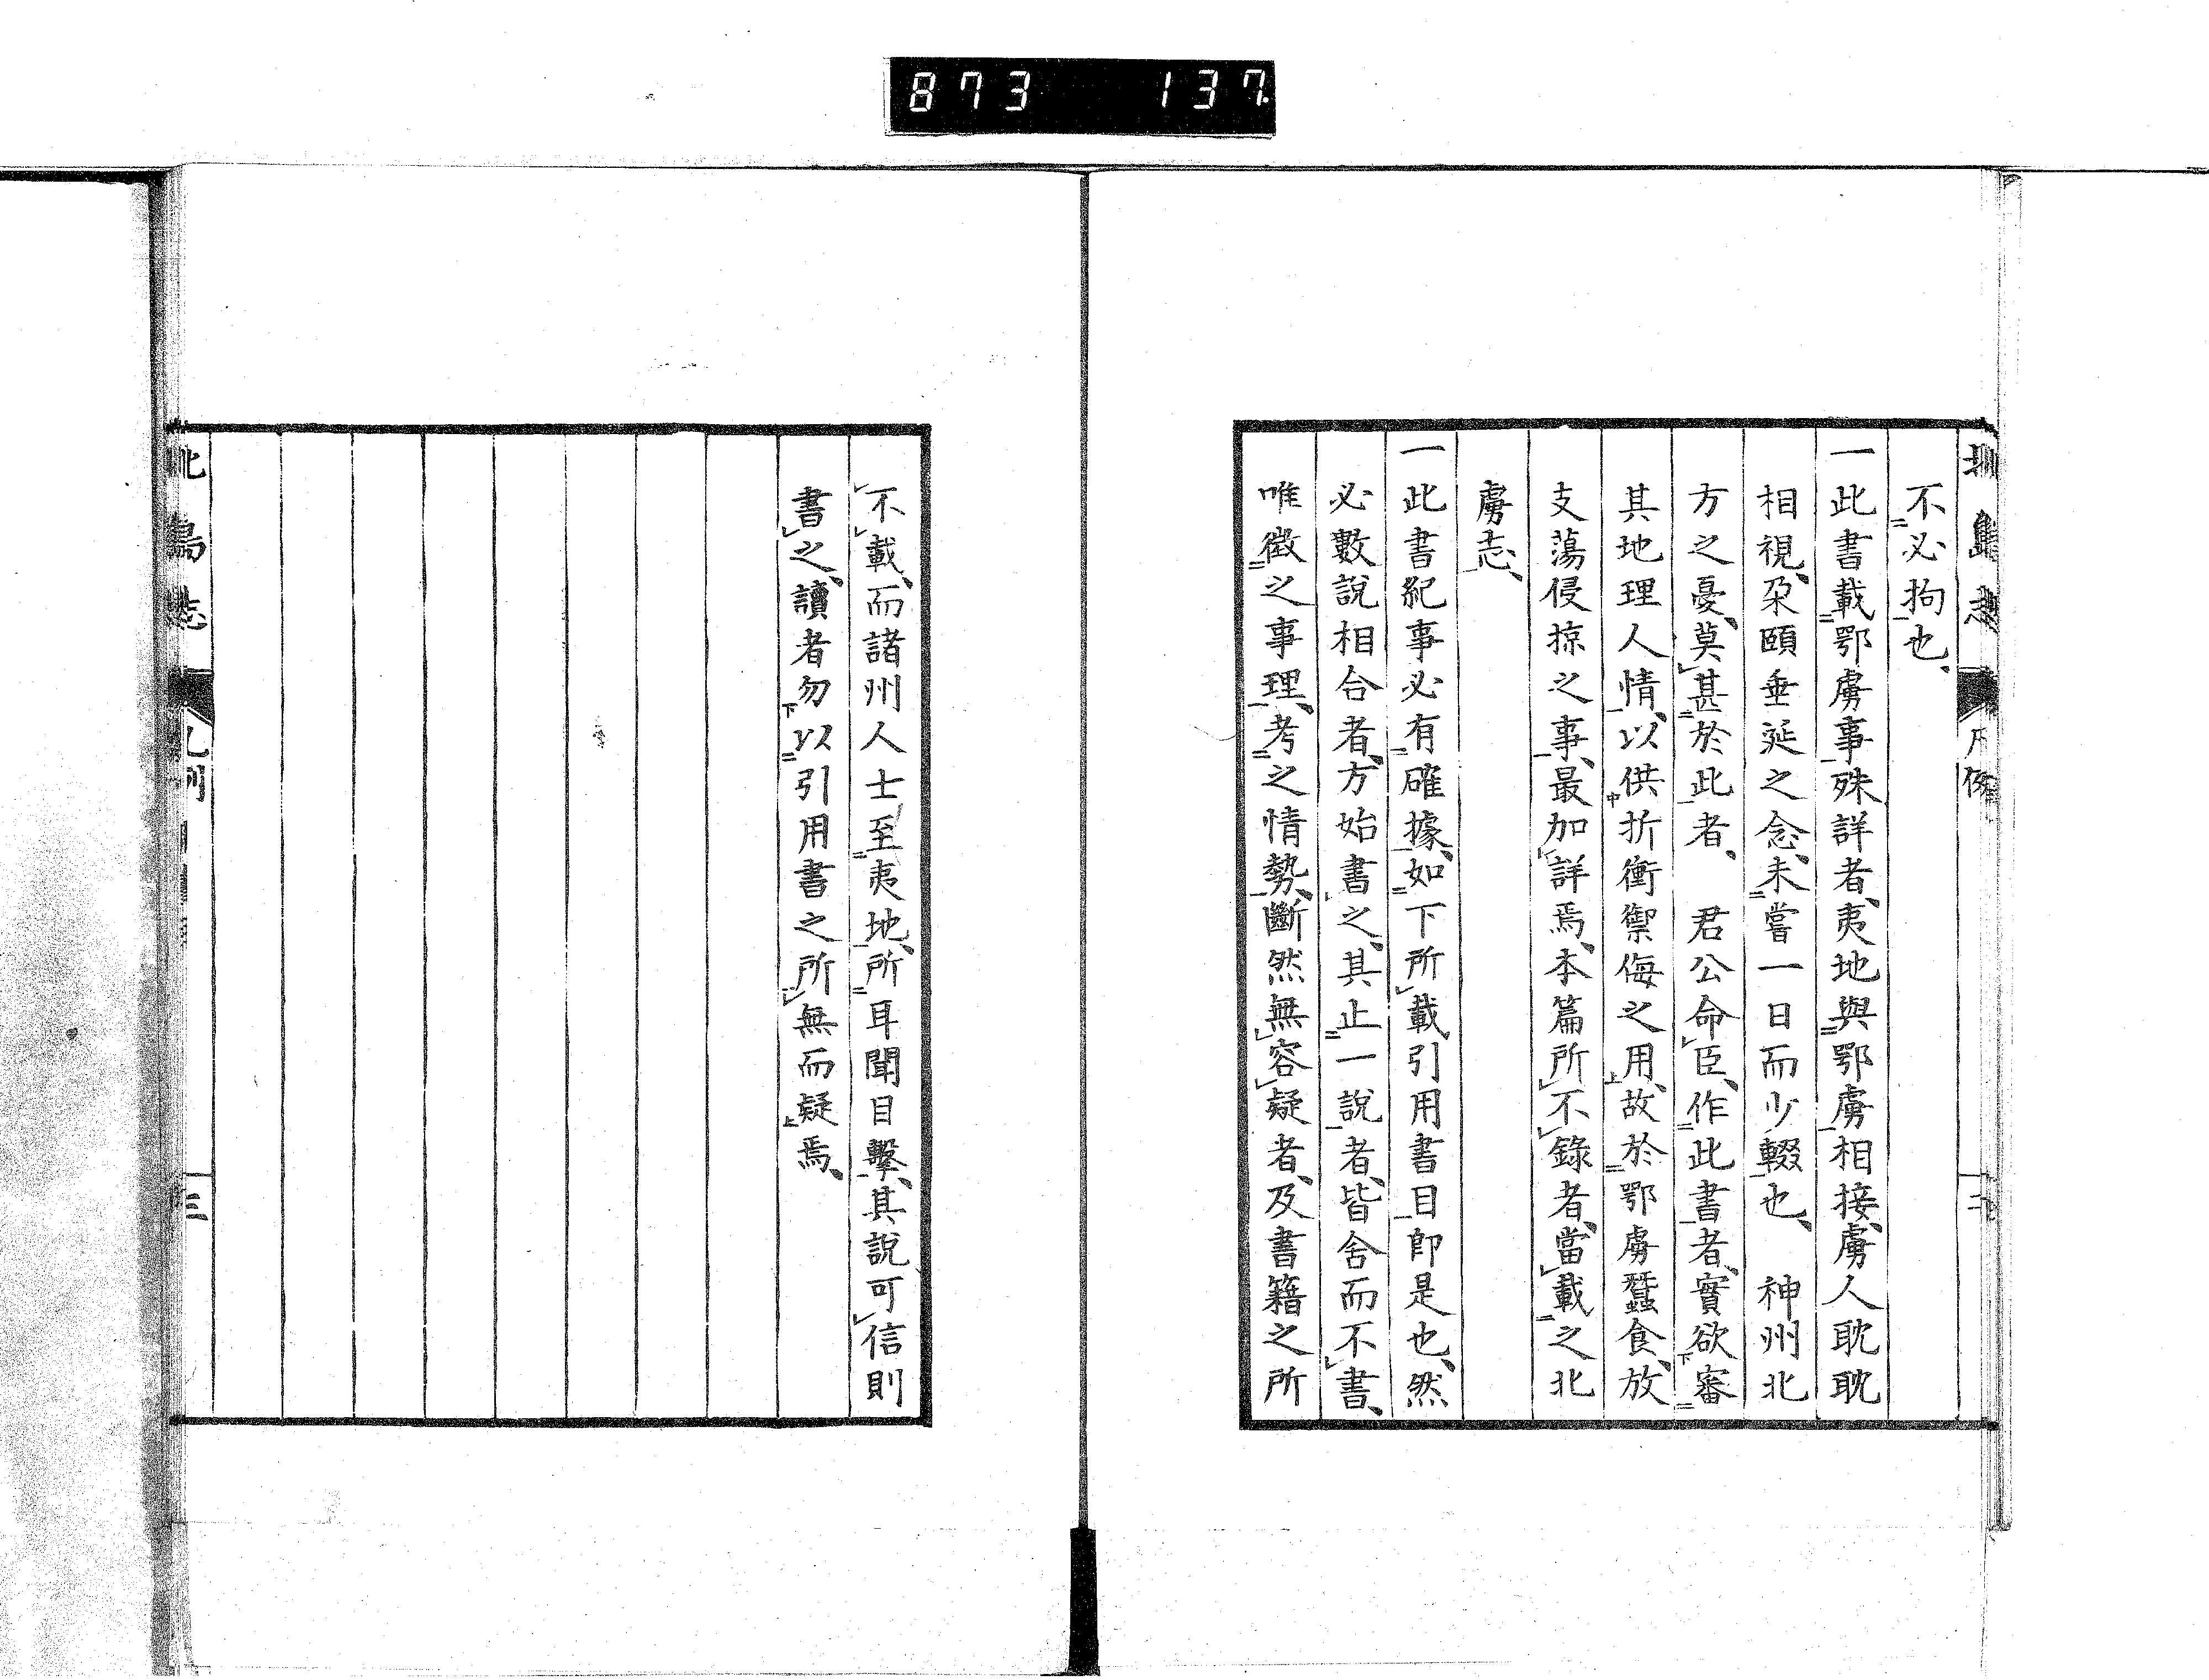 873 137
不必拘也、
一此書載鄂虜事殊詳者、夷地與鄂虜相接、虜人耽耽
相視、朶頤垂延之念、未嘗一日而少輟也、 神州北
方之憂、莫甚於此者、 君公命臣、作此書者、實欲審
其地理人情、以供折衝禦侮之用、故於鄂虜蠶食、放
支蕩侵掠之事、最加詳焉、本篇所不錄者、當載之北
虜志、
一此書紀事必有確據、如下所載引用書目卽是也、然
必數說相合者、方始書之、其止一說者、皆舍而不書、
唯徵之事理、考之情勢、斷然無容疑者、及書籍之所
不載、而諸州人士至夷地、所耳聞目擊、其說可信則
書之、讀者勿以引用書之所無而疑焉、
北島志 凡例 三